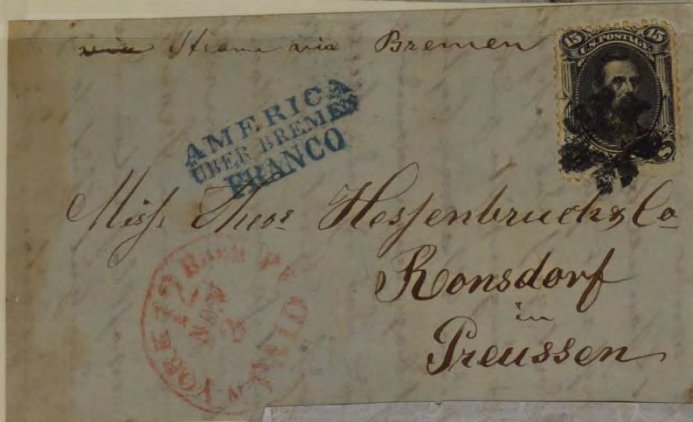 via Steam via Bremen
15 U.S. POSTAGE 15
AMERICA
ÜBER BREMEN
FRANCO
Miss. Thos Hessenbruck & Co
Ronsdorf
in
Preussen
YORK 12 BREM PK
NOV